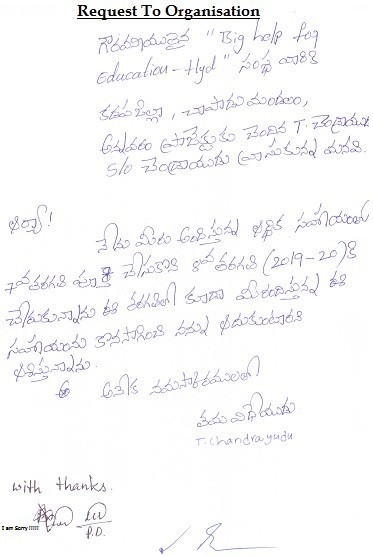 Request To Organisation
గౌరవనీయులైన "Big help for
Education - Hyd" సంస్థ వారికి
కడప జిల్లా, చాపాడు మండలం,
అన్నవరం ప్రాజెక్టుకు చెందిన T. చంద్రాయుడు
S/o చెంద్రాయుడు వ్రాసుకున్న మనవి.
ఆర్యా!
నేను మీరు అందిస్తున్న ఆర్థిక సహాయంతో
7వ తరగతి పూర్తి చేసుకొని 8వ తరగతి (2019-20) కి
చేరుకున్నాను ఈ తరగతిలో కూడా మీరందిస్తున్న ఈ
సహాయంను కొనసాగించి నన్ను ఆదుకుంటారని
ఆశిస్తున్నాను.
అనేక నమస్కారములతో
తమ విధేయుడు
T. Chandrayudu
with thanks.
P.D.
I am Sorry !!!!!